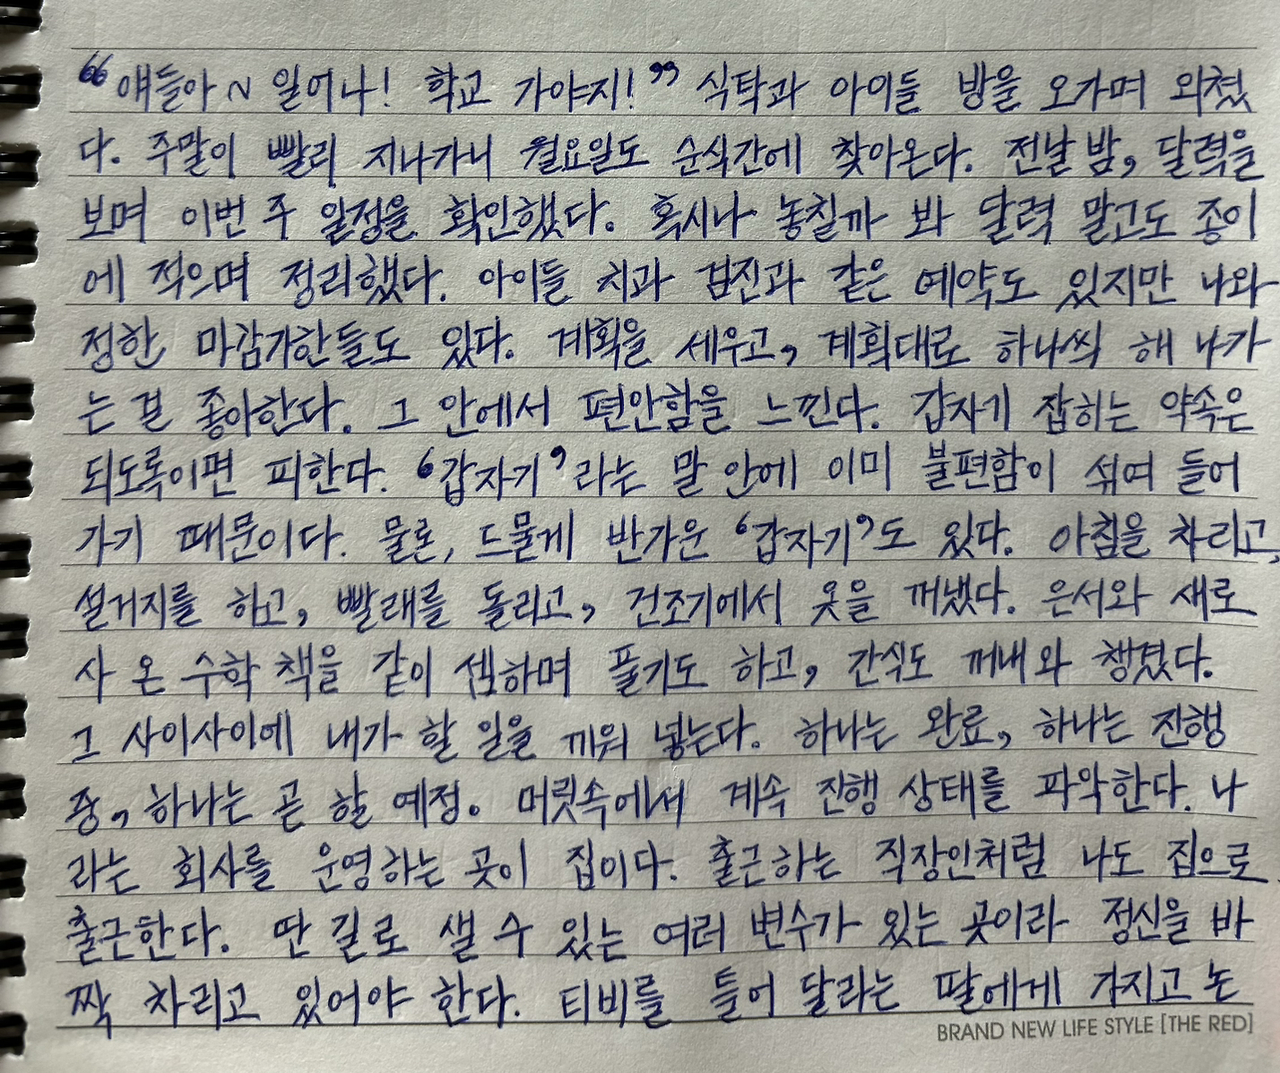 “얘들아~ 일어나! 학교 가야지!” 식탁과 아이들 방을 오가며 외쳤
다. 주말이 빨리 지나가니 월요일도 순식간에 찾아온다. 전날 밤, 달력을
보며 이번 주 일정을 확인했다. 혹시나 놓칠까 봐 달력 말고도 종이
에 적으며 정리했다. 아이들 치과 검진과 같은 예약도 있지만 나와
정한 마감기한들도 있다. 계획을 세우고, 계획대로 하나씩 해 나가
는 걸 좋아한다. 그 안에서 편안함을 느낀다. 갑자기 잡히는 약속은
되도록이면 피한다. ‘갑자기’라는 말 안에 이미 불편함이 섞여 들어
가기 때문이다. 물론, 드물게 반가운 ‘갑자기’도 있다. 아침을 차리고,
설거지를 하고, 빨래를 돌리고, 건조기에서 옷을 꺼냈다. 은서와 새로
사 온 수학 책을 같이 셈하며 풀기도 하고, 간식도 꺼내 와 챙겼다.
그 사이사이에 내가 할 일을 끼워 넣는다. 하나는 완료, 하나는 진행
중, 하나는 곧 할 예정. 머릿속에서 계속 진행 상태를 파악한다. 나
라는 회사를 운영하는 곳이 집이다. 출근하는 직장인처럼 나도 집으로
출근한다. 딴 길로 샐 수 있는 여러 변수가 있는 곳이라 정신을 바
짝 차리고 있어야 한다. 티비를 틀어 달라는 딸에게 가지고 논
BRAND NEW LIFE STYLE [THE RED]